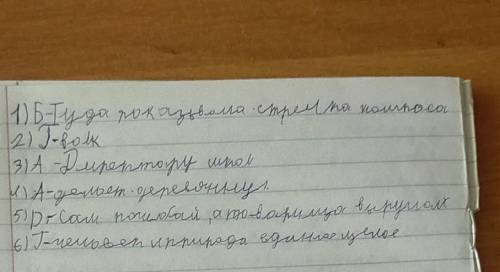 1) Б-Туда показывала стрелка компаса
2) Г-волк
3) А-Директору школ
4) А-делает деревянную
5) D-Сам погибай, а товарища выручай
6) Г-человек и природа единое целое